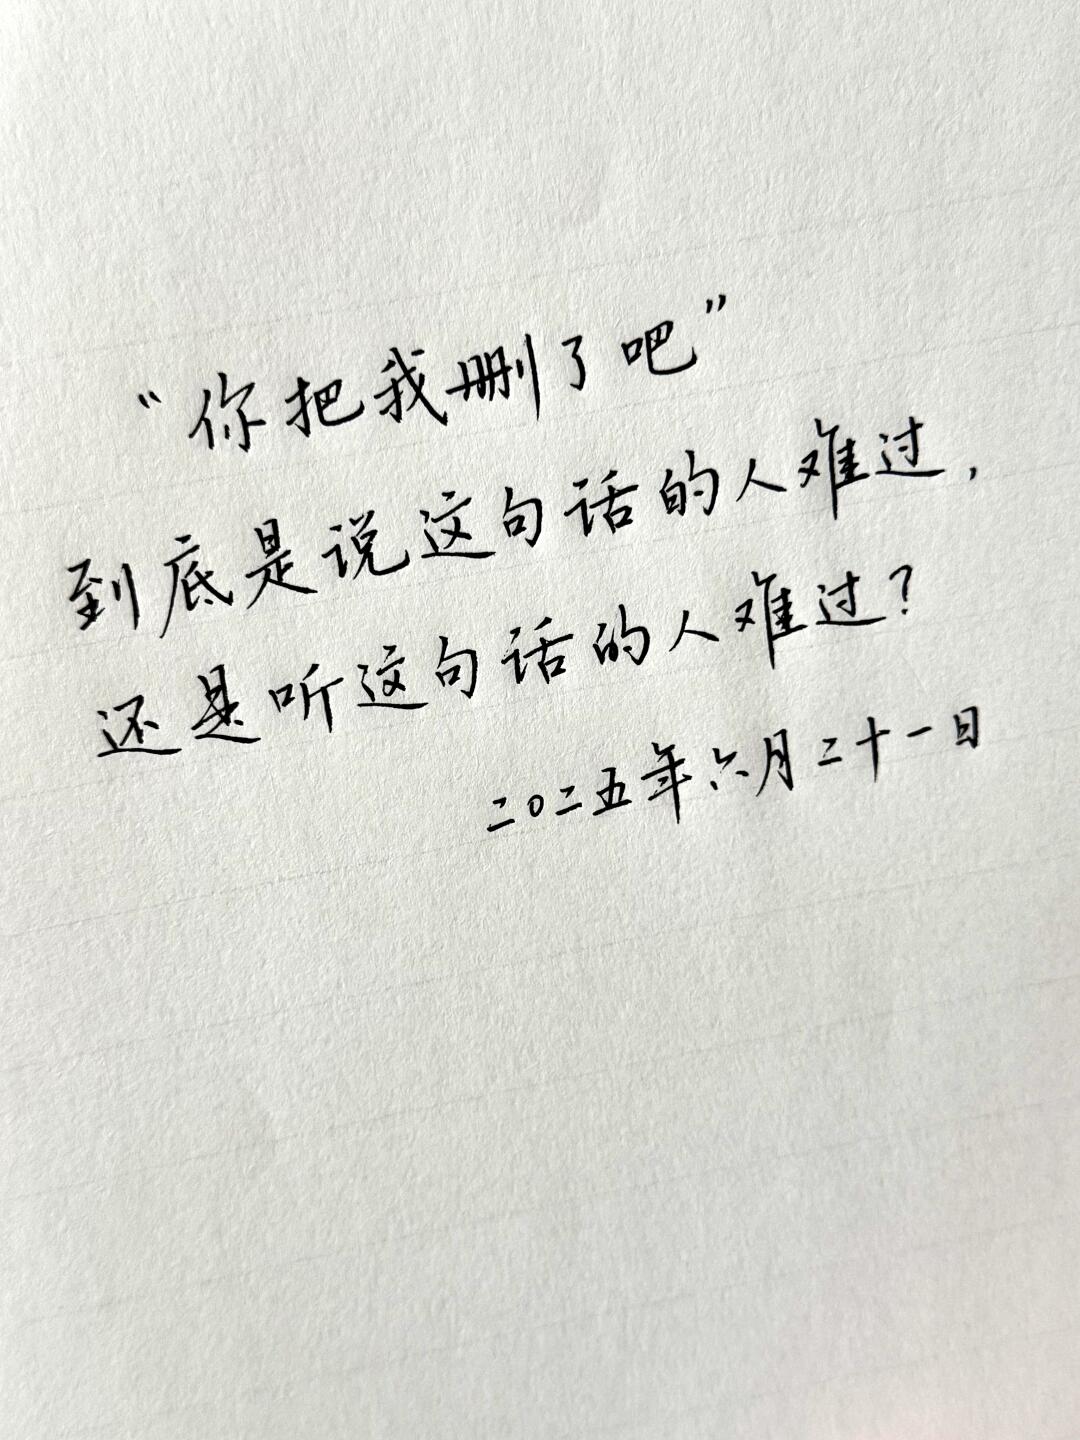 “你把我删了吧”
到底是说这句话的人难过，
还是听这句话的人难过？
二〇二五年六月二十一日